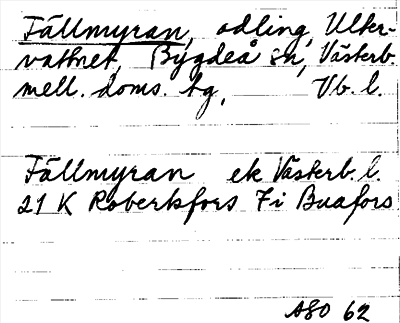 Fällmyran, odling, Ulter-
vattnet, Bygdeå sn, Västerb.
mell. doms. tg, Vb. l.
Fällmyran ek Västerb. l.
21 K Robertsfors 7i Buafors
ASO 62